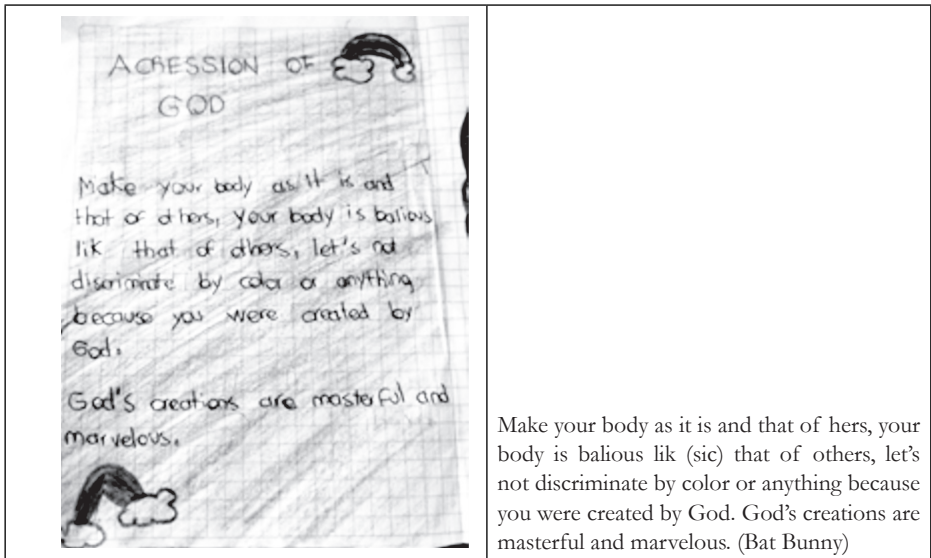 ACRESSION OF
GOD
Make your body as it is and
that of others, your body is balious
lik that of others, let's not
discriminate by color or anything
because you were created by
God.
God's creations are masterful and
marvelous.
Make your body as it is and that of hers, your
body is balious lik (sic) that of others, let's
not discriminate by color or anything because
you were created by God. God's creations are
masterful and marvelous. (Bat Bunny)